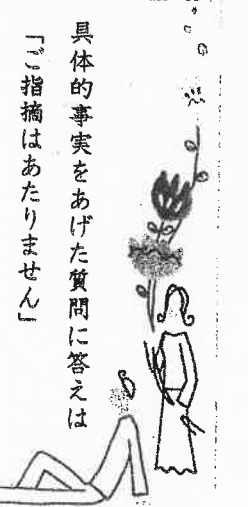 具体的事実をあげた質問に答えは
「ご指摘はあたりません」